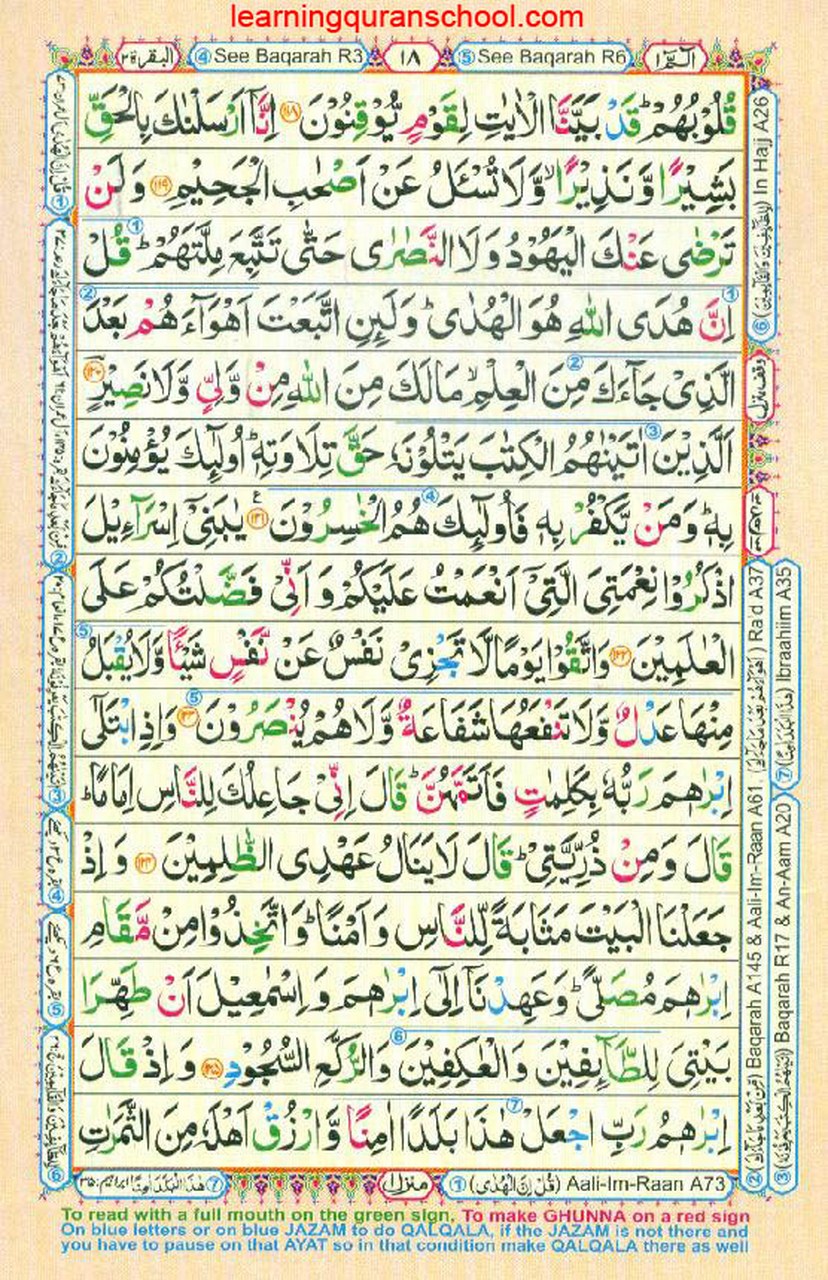 learningquranschool.com
البقرة ٢
④ See Baqarah R3
١٨
⑤ See Baqarah R6
الٓمّٓ ١
قُلُوۡبُهُمۡ‌ؕ قَدۡ بَيَّنَّا الۡاٰيٰتِ لِقَوۡمٍ يُّوۡقِنُوۡنَ ﴿۱۱۸﴾ اِنَّآ اَرۡسَلۡنٰكَ بِالۡحَـقِّ
بَشِيۡرًا وَّنَذِيۡرًاۙ‌ وَّلَا تُسۡـَٔـلُ عَنۡ اَصۡحٰبِ الۡجَحِيۡمِ ﴿۱۱۹﴾ وَلَنۡ
تَرۡضٰى عَنۡكَ الۡيَهُوۡدُ وَلَا النَّصٰرٰى حَتّٰى تَتَّبِعَ مِلَّتَهُمۡ‌ؕ قُلۡ
اِنَّ هُدَى اللّٰهِ هُوَ الۡهُدٰى‌ؕ وَلَٮِٕنِ اتَّبَعۡتَ اَهۡوَآءَهُمۡ بَعۡدَ
الَّذِىۡ جَآءَكَ مِنَ الۡعِلۡمِ‌ۙ مَا لَـكَ مِنَ اللّٰهِ مِنۡ وَّلِىٍّ وَّلَا نَصِيۡرٍ ﴿۱۲۰﴾
اَلَّذِيۡنَ اٰتَيۡنٰهُمُ الۡكِتٰبَ يَتۡلُوۡنَهٗ حَقَّ تِلَاوَتِهٖؕ اُولٰٓٮِٕكَ يُؤۡمِنُوۡنَ
بِهٖ‌ؕ وَمَنۡ يَّكۡفُرۡ بِهٖ فَاُولٰٓٮِٕكَ هُمُ الۡخٰسِرُوۡنَ ﴿۱۲۱﴾ يٰبَنِىۡٓ اِسۡرَآءِيۡلَ
اذۡكُرُوۡا نِعۡمَتِىَ الَّتِىۡٓ اَنۡعَمۡتُ عَلَيۡكُمۡ وَاَنِّىۡ فَضَّلۡتُكُمۡ عَلَى
الۡعٰلَمِيۡنَ ﴿۱۲۲﴾ وَاتَّقُوۡا يَوۡمًا لَّا تَجۡزِىۡ نَفۡسٌ عَنۡ نَّفۡسٍ شَيۡـًٔـا وَّلَا يُقۡبَلُ
مِنۡهَا عَدۡلٌ وَّلَا تَنۡفَعُهَا شَفَاعَةٌ وَّلَا هُمۡ يُنۡصَرُوۡنَ ﴿۱۲۳﴾ وَاِذِ ابۡتَلٰٓى
اِبۡرٰهٖمَ رَبُّهٗ بِكَلِمٰتٍ فَاَتَمَّهُنَّ‌ؕ قَالَ اِنِّىۡ جَاعِلُكَ لِلنَّاسِ اِمَامًا‌ؕ
قَالَ وَمِنۡ ذُرِّيَّتِىۡ‌ؕ قَالَ لَا يَنَالُ عَهۡدِى الظّٰلِمِيۡنَ ﴿۱۲۴﴾ وَاِذۡ
جَعَلۡنَا الۡبَيۡتَ مَثَابَةً لِّلنَّاسِ وَاَمۡنًا ؕ وَاتَّخِذُوۡا مِنۡ مَّقَامِ
اِبۡرٰهٖمَ مُصَلًّى‌ؕ وَعَهِدۡنَآ اِلٰٓى اِبۡرٰهٖمَ وَاِسۡمٰعِيۡلَ اَنۡ طَهِّرَا
بَيۡتِىَ لِلطَّآٮِٕفِيۡنَ وَالۡعٰكِفِيۡنَ وَالرُّکَّعِ السُّجُوۡدِ ﴿۱۲۵﴾ وَاِذۡ قَالَ
اِبۡرٰهٖمُ رَبِّ اجۡعَلۡ هٰذَا بَلَدًا اٰمِنًا وَّارۡزُقۡ اَهۡلَهٗ مِنَ الثَّمَرٰتِ
⑥ (لِلطَّآئِفِيۡنَ وَالۡقَآئِمِيۡنَ) In Hajj A26
② Baqarah A145 & Aali-Im-Raan A61, Ra'd A37
③ Baqarah R17 & An-Aam A20
⑦ (هٰذَا الۡبَلَدَ اٰمِنًا) Ibraahiim A35
① (قُلۡ اِنَّ الۡهُدٰى) Aali-Im-Raan A73
منزل ١
⑦ هٰذَا الۡبَلَدَ اٰمِنًا ابراهيم: ٣٥
To read with a full mouth on the green sign, To make GHUNNA on a red sign
On blue letters or on blue JAZAM to do QALQALA, if the JAZAM is not there and
you have to pause on that AYAT so in that condition make QALQALA there as well